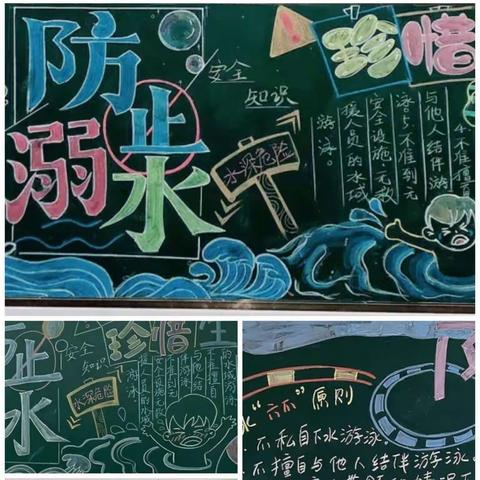 防
溺
止
水
安全
知识
水深危险
珍惜
4.不准擅自
与他人结伴游
泳。5.不准到无
安全设施、无救
援人员的水域
游泳。
止
水
安全
知识
珍惜
水深危险
水“六不”原则
不私自下水游泳。
不擅自与他人结伴游泳。